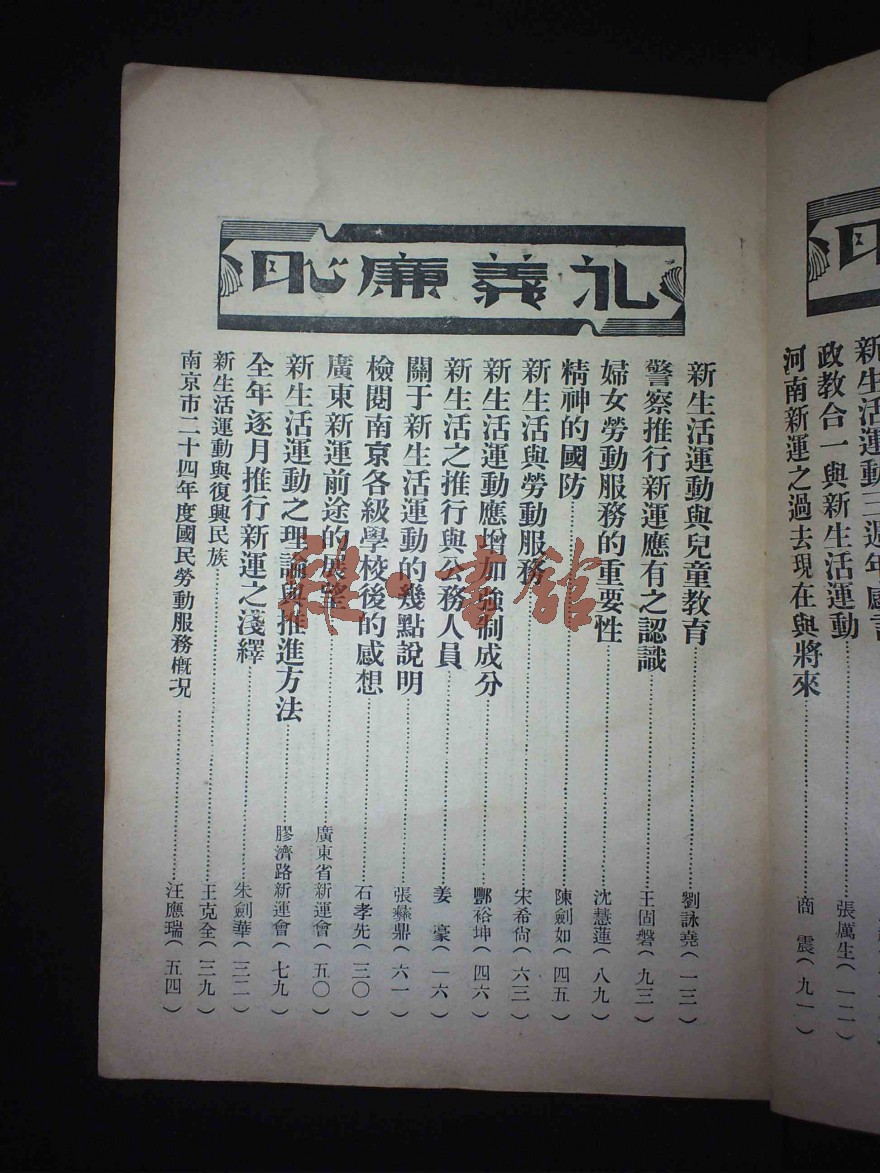 礼義廉恥
新生活運動與兒童教育……劉詠堯(一三)
警察推行新運應有之認識……王固磐(九三)
婦女勞動服務的重要性……沈慧蓮(八九)
精神的國防……陳劍如(四五)
新生活與勞動服務……宋希尙(六三)
新生活運動應增加強制成分……酆裕坤(四六)
新生活之推行與公務人員……姜豪(一六)
關于新生活運動的幾點說明……張彝鼎(六一)
檢閱南京各級學校後的感想……石孝先(三〇)
廣東新運前途的展望……廣東省新運會(五〇)
新生活運動之理論與推進方法……膠濟路新運會(七九)
全年逐月推行新運之淺繹……朱劍華(三二)
新生活運動與復興民族……王克全(三九)
南京市二十四年度國民勞動服務概况……汪應瑞(五四)
新生活運動三週年感言
政教合一與新生活運動……張厲生(一二)
河南新運之過去現在與將來……商震(九一)
雜·書館